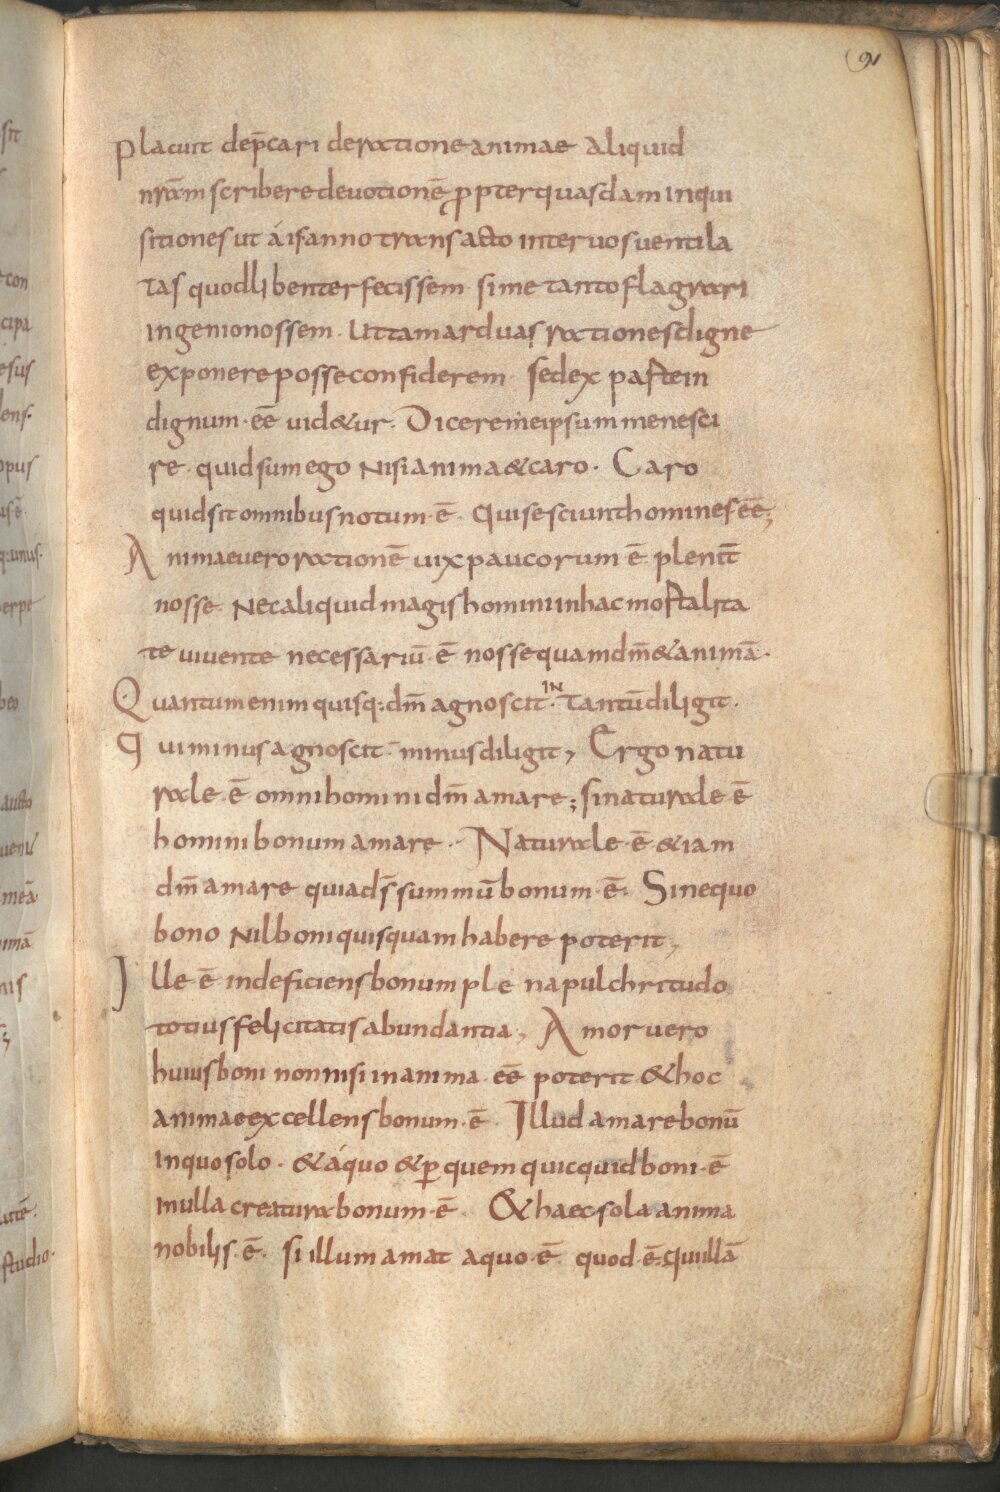 91
Placuit dep̄cari derationeanimae Aliquid
nr̄am scriberedeuotionē propterquasdam inqui
sitionesut á isanno transacto interuosuentila
tas quodlibenterfecissem· simetantoflagrari
ingenionossem· Uttamarduasrationesdigne
exponereposseconfiderem· sedex partein
dignum·eē uid&ur· Diceremeipsummenesci
re· quidsumego Nisianima&caro· Caro
quidsitomnibusnotum·ē· Quisesciunthomineseē;
Animaeuerorationē uixpaucorum·ē· plenit̄
nosse· Necaliquidmagishominiinhacmortalita
teuiuente necessariū·ē· nossequamdm̄&animā·
Quantumenimquisq:dm̄agnoscit· IN Tantūdiligit·
Quiminusagnoscit· minusdiligit, Ergonatu
rale·ē· omnihominidm̄amare; sinaturale·ē·
hominibonumamare·· Naturale·ē·&iam
dm̄amare quiads̄summū bonum·ē· Sinequo
bono Nilboniquisquamhabere poterit,
Ille·ē· indeficiensbonumple napulchritudo
totiusfelicitatisabundantia, Amoruero
huiusboni nonnisiinanima·eē· poterit &hoc
animaeexcellensbonum·ē· Illudamarebonū
inquosolo· &áquo &ꝑquemquicquidboni·ē·
inullacreaturabonum·ē· &haecsolaanima
nobilis·ē· siillumamat aquo·ē· quod·ē·quiillā